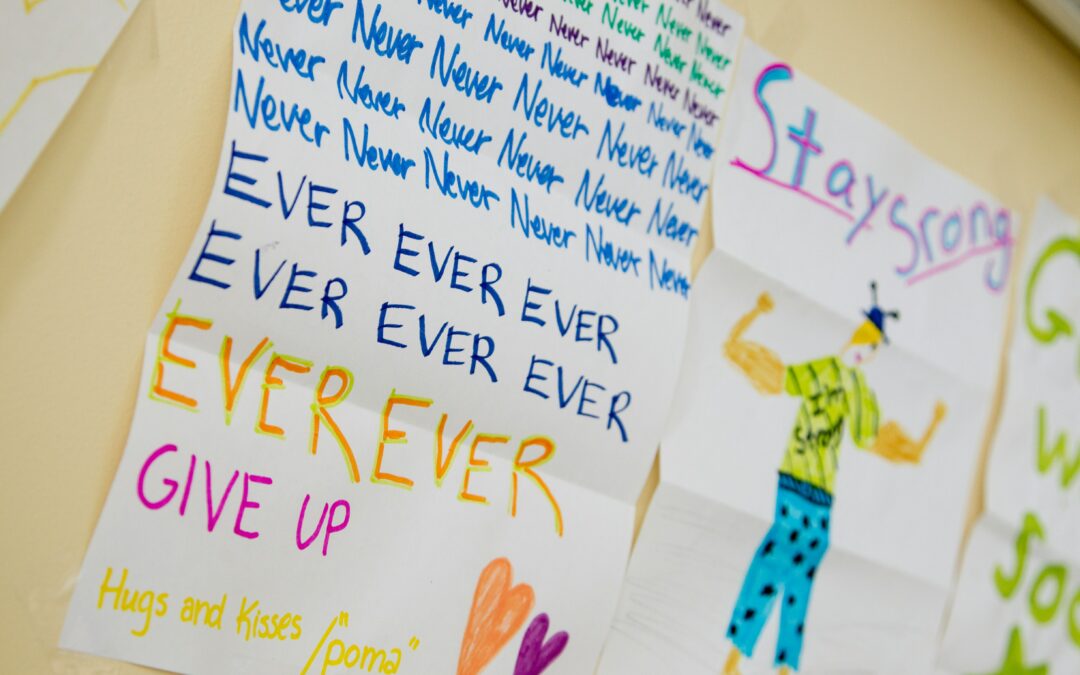 Never Never
Never Never Never
Never Never Never Never Never
Never Never Never Never Never Never
Never Never Never Never Never
Never Never Never Never Never Never
Never Never Never Never Never Never
EVER EVER EVER
EVER EVER EVER
EVER EVER
GIVE UP
Hugs and Kisses /"poma"
Stay srong
I'm
strong
G
w
soo